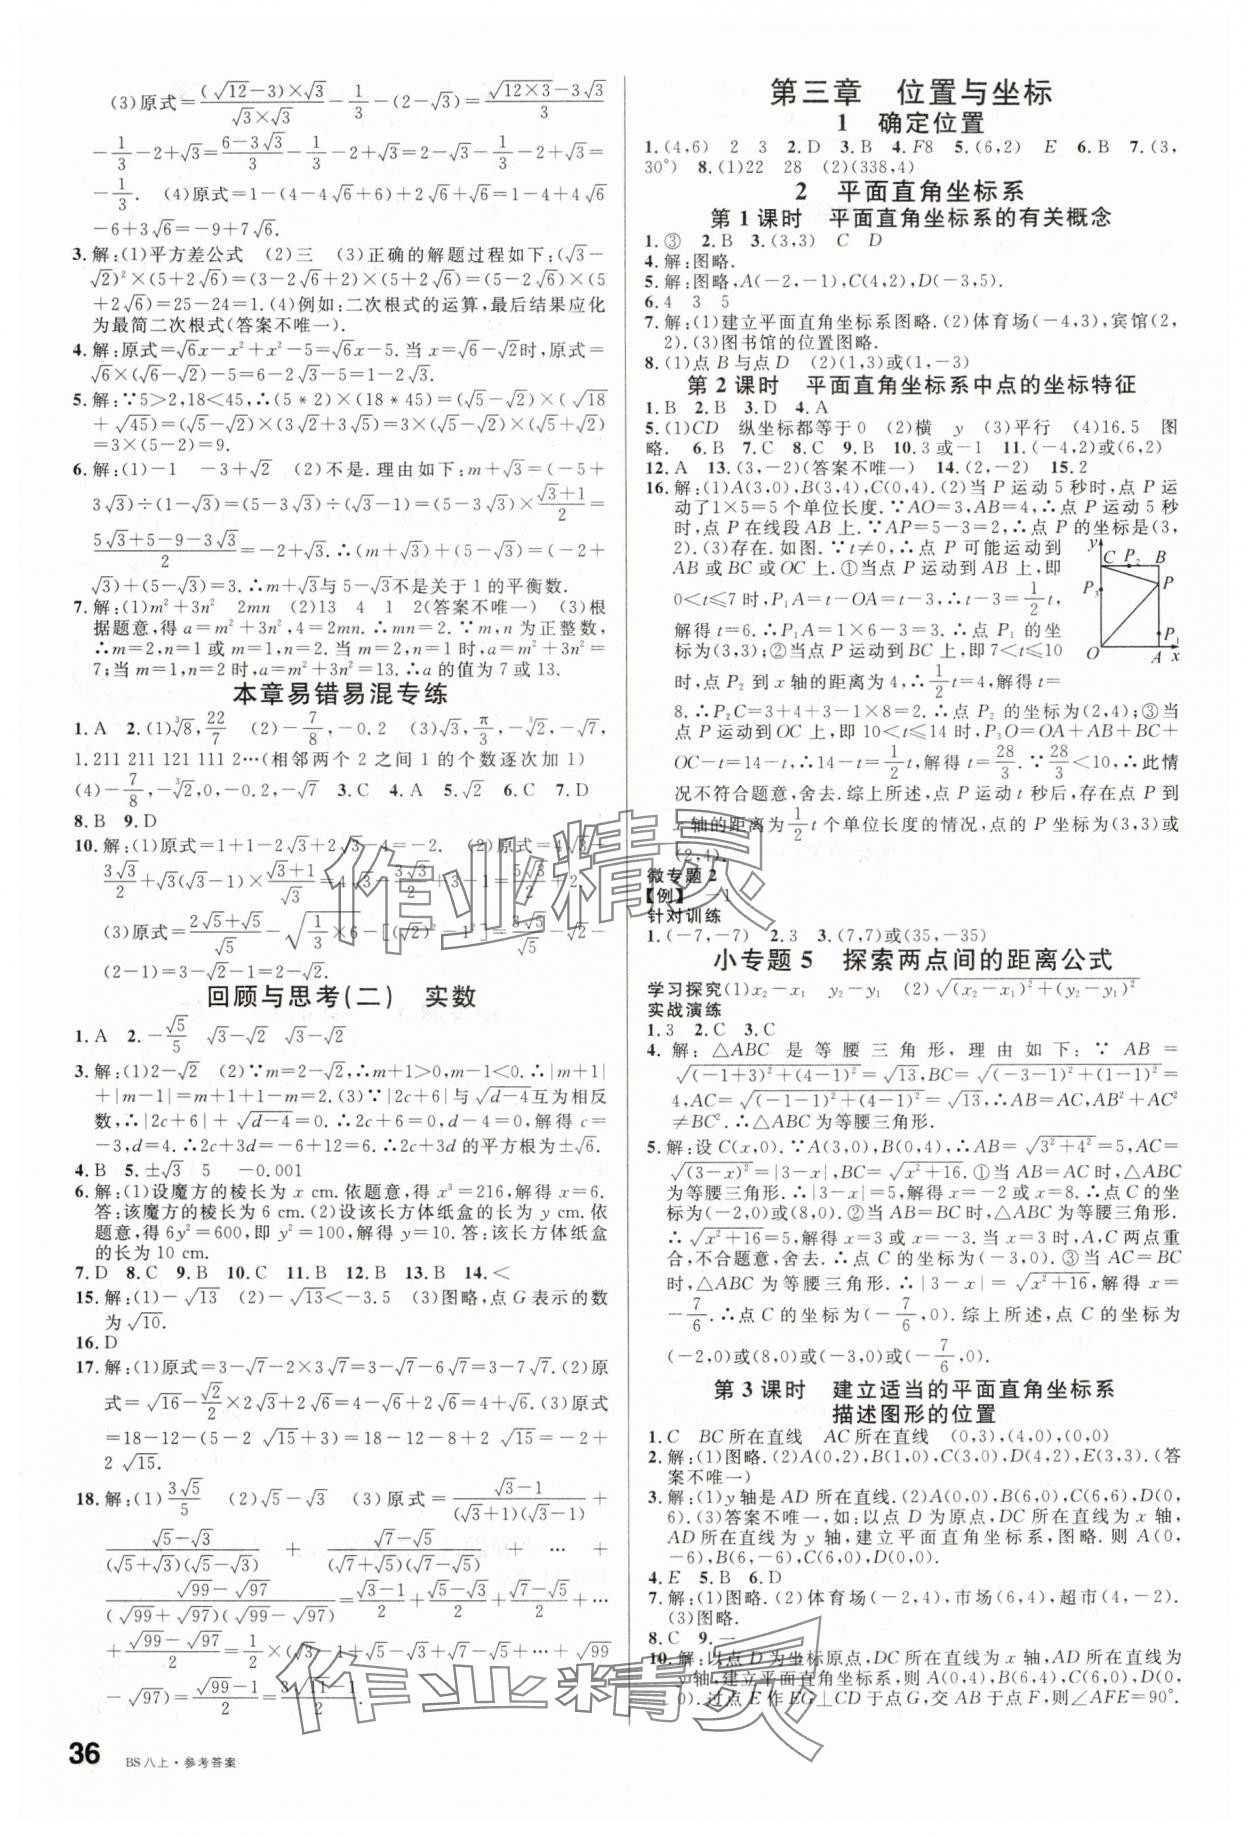 (3)原式=(√12-3)×√3/√3×√3-1/3-(2-√3)=√12×3-3√3/3
-1/3-2+√3=6-3√3/3-1/3-2+√3=2-√3-1/3-2+√3=
-1/3. (4)原式=1-(4-4√6+6)+2√6+√6=1-4+4√6
-6+3√6=-9+7√6.
3.解:(1)平方差公式 (2)三 (3)正确的解题过程如下:(√3-
√2)²×(5+2√6)=(3-2√6+2)×(5+2√6)=(5-2√6)×(5
+2√6)=25-24=1.(4)例如:二次根式的运算,最后结果应化
为最简二次根式(答案不唯一).
4.解:原式=√6x-x²+x²-5=√6x-5.当x=√6-√2时,原式=
√6×(√6-√2)-5=6-2√3-5=1-2√3.
5.解:∵5>2,18<45,∴(5*2)×(18*45)=(√5-√2)×(√18
+√45)=(√5-√2)×(3√2+3√5)=3×(√5-√2)×(√5+√2)
=3×(5-2)=9.
6.解:(1)-1 -3+√2 (2)不是.理由如下:m+√3=(-5+
3√3)÷(1-√3)=(5-3√3)÷(√3-1)=(5-3√3)×√3+1/2=
5√3+5-9-3√3/2=-2+√3.∴(m+√3)+(5-√3)=(-2+
√3)+(5-√3)=3.∴m+√3与5-√3不是关于1的平衡数.
7.解:(1)m²+3n² 2mn (2)13 4 1 2(答案不唯一) (3)根
据题意,得a=m²+3n²,4=2mn.∴mn=2.∵m,n为正整数,
∴m=2,n=1或m=1,n=2.当m=2,n=1时,a=m²+3n²=
7;当m=1,n=2时,a=m²+3n²=13.∴a的值为7或13.
本章易错易混专练
1.A 2.(1)³√8,22/7 (2)-7/8,-0.2 (3)√3,π/3,-³√2,-√7,
1.211 211 121 111 2…(相邻两个2之间1的个数逐次加1)
(4)-7/8,-³√2,0,-0.2,-√7 3.C 4.A 5.√2 6.C 7.D
8.B 9.D
10.解:(1)原式=1+1-2√3+2√3-4=-2. (2)原式=4√3+
3√3/2+√3(√3-1)×√3+1/2=4√3-3√3/2+3√3+5/2
(3)原式=2√5+√5/√5-√1/3×6-[(√2)²-1²]=3√5/√5-√2-
(2-1)=3-√2-1=2-√2.
回顾与思考(二) 实数
1.A 2.-√5/5 √3-√2 √3-√2
3.解:(1)2-√2 (2)∵m=2-√2,∴m+1>0,m-1<0.∴|m+1|
+|m-1|=m+1+1-m=2.(3)∵|2c+6|与√d-4互为相反
数,∴|2c+6|+√d-4=0.∴2c+6=0,d-4=0,解得c=
-3,d=4.∴2c+3d=-6+12=6.∴2c+3d的平方根为±√6.
4.B 5.±√3 5 -0.001
6.解:(1)设魔方的棱长为x cm.依题意,得x³=216,解得x=6.
答:该魔方的棱长为6 cm.(2)设该长方体纸盒的长为y cm.依
题意,得6y²=600,即y²=100,解得y=10.答:该长方体纸盒
的长为10 cm.
7.D 8.C 9.B 10.C 11.B 12.B 13.B 14.<
15.解:(1)-√13 (2)-√13<-3.5 (3)图略,点G表示的数
为√10.
16.D
17.解:(1)原式=3-√7-2×3√7=3-√7-6√7=3-7√7.(2)原
式=√16-√2/2×2√3+2√6=4-√6+2√6=4+√6.(3)原式
=18-12-(5-2√15+3)=18-12-8+2√15=-2+
2√15.
18.解:(1)3√5/5 (2)√5-√3 (3)原式=√3-1/(√3+1)(√3-1)+
√5-√3/(√5+√3)(√5-√3)+√7-√5/(√7+√5)(√7-√5)+…+
√99-√97/(√99+√97)(√99-√97)=√3-1/2+√5-√3/2+√7-√5/2+…
+√99-√97/2=1/2×(√3-1+√5-√3+√7-√5+…+√99
-√97)=√99-1/2=3√11-1/2.
36 BS八上·参考答案
第三章 位置与坐标
1 确定位置
1.(4,6) 2 3 2.D 3.B 4.F8 5.(6,2) E 6.B 7.(3,
30°) 8.(1)22 28 (2)(338,4)
2 平面直角坐标系
第1课时 平面直角坐标系的有关概念
1.③ 2.B 3.(3,3) C D
4.解:图略.
5.解:图略,A(-2,-1),C(4,2),D(-3,5).
6.4 3 5
7.解:(1)建立平面直角坐标系图略.(2)体育场(-4,3),宾馆(2,
2).(3)图书馆的位置图略.
8.(1)点B与点D (2)(1,3)或(1,-3)
第2课时 平面直角坐标系中点的坐标特征
1.B 2.B 3.D 4.A
5.(1)CD 纵坐标都等于0 (2)横 y (3)平行 (4)16.5 图
略. 6.B 7.C 8.C 9.B 10.3或-1 11.(-4,2)或(6,2)
12.A 13.(3,-2)(答案不唯一) 14.(2,-2) 15.2
16.解:(1)A(3,0),B(3,4),C(0,4).(2)当P运动5秒时,点P运
动了1×5=5个单位长度.∵AO=3,AB=4,∴点P运动5秒
时,点P在线段AB上.∵AP=5-3=2,∴点P的坐标是(3,
2).(3)存在.如图.∵t≠0,∴点P可能运动到
AB或BC或OC上.①当点P运动到AB上时,即
0<t≤7时,P₁A=t-OA=t-3,∴t-3=1/2t,
解得t=6.∴P₁A=1×6-3=3.∴点P₁的坐
标为(3,3);②当点P运动到BC上时,即7<t≤10
时,点P₂到x轴的距离为4,∴1/2t=4,解得t=
8.∴P₂C=3+4+3-1×8=2.∴点P₂的坐标为(2,4);③当
点P运动到OC上,即10<t≤14时,P₃O=OA+AB+BC+
OC-t=14-t,∴14-t=1/2t,解得t=28/3.∵28/3<10,∴此情
况不符合题意,舍去.综上所述,点P运动t秒后,存在点P到
x轴的距离为1/2t个单位长度的情况,点的P坐标为(3,3)或
(2,4).
y C P₂ B P P₃ P₁ O A x
微专题2
【例】 -1
针对训练
1.(-7,-7) 2.3 3.(7,7)或(35,-35)
小专题5 探索两点间的距离公式
学习探究(1)x₂-x₁ y₂-y₁ (2)√(x₂-x₁)²+(y₂-y₁)²
实战演练
1.3 2.C 3.C
4.解:△ABC是等腰三角形,理由如下:∵AB=
√(-1+3)²+(4-1)²=√13,BC=√(-3-1)²+(1-1)²=
4,AC=√(-1-1)²+(4-1)²=√13,∴AB=AC,AB²+AC²
≠BC².∴△ABC为等腰三角形.
5.解:设C(x,0).∵A(3,0),B(0,4),∴AB=√3²+4²=5,AC=
√(3-x)²=|3-x|,BC=√x²+16.①当AB=AC时,△ABC
为等腰三角形.∴|3-x|=5,解得x=-2或x=8.∴点C的坐
标为(-2,0)或(8,0).②当AB=BC时,△ABC为等腰三角形.
∴√x²+16=5,解得x=3或x=-3.当x=3时,A,C两点重
合,不合题意,舍去.∴点C的坐标为(-3,0).③当AC=BC
时,△ABC为等腰三角形.∴|3-x|=√x²+16,解得x=
-7/6.∴点C的坐标为(-7/6,0).综上所述,点C的坐标为
(-2,0)或(8,0)或(-3,0)或(-7/6,0).
第3课时 建立适当的平面直角坐标系
描述图形的位置
1.C BC所在直线 AC所在直线 (0,3),(4,0),(0,0)
2.解:(1)图略.(2)A(0,2),B(0,0),C(3,0),D(4,2),E(3,3).(答
案不唯一)
3.解:(1)y轴是AD所在直线.(2)A(0,0),B(6,0),C(6,6),D(0,
6).(3)答案不唯一,如:以点D为原点,DC所在直线为x轴,
AD所在直线为y轴,建立平面直角坐标系,图略.则A(0,
-6),B(6,-6),C(6,0),D(0,0).
4.E 5.B 6.D
7.解:(1)图略.(2)体育场(-2,4),市场(6,4),超市(4,-2).
(3)图略.
8.C 9.一
10.解:以点D为坐标原点,DC所在直线为x轴,AD所在直线为
y轴,建立平面直角坐标系,则A(0,4),B(6,4),C(6,0),D(0,
0).过点E作EG⊥CD于点G,交AB于点F,则∠AFE=90°.
作业精灵
作业精灵